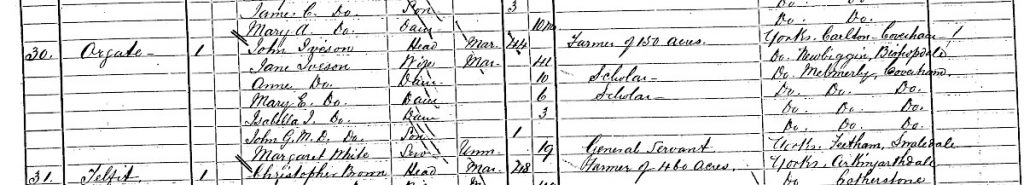 James C. Do. Son 3 Do. Do.
Mary A. Do. Daur 10m Do. Do.
30. Orgate 1 John Iveson Head Mar. 44 Farmer of 150 acres. Yorks. Carlton-Coverham
Jane Iveson Wife Mar. 41 Do. Newbiggin, Bishopdale
Anne Do. Daur 10 Scholar Do. Melmerby, Coverham.
Mary E. Do. Daur 6 Scholar Do. Do. Do.
Isabella I. Do. Daur 3 Do. Do. Do.
John G.M.D. Do. Son 1 Do. Do. Do.
Margaret White Serv Unm. 19 General Servant Yorks. Feetham,
31. Telfit 1 Christopher Brown Head Mar. Farmer of 460 acres. Yorks. Arkingarthdale
Do. Cotherstone